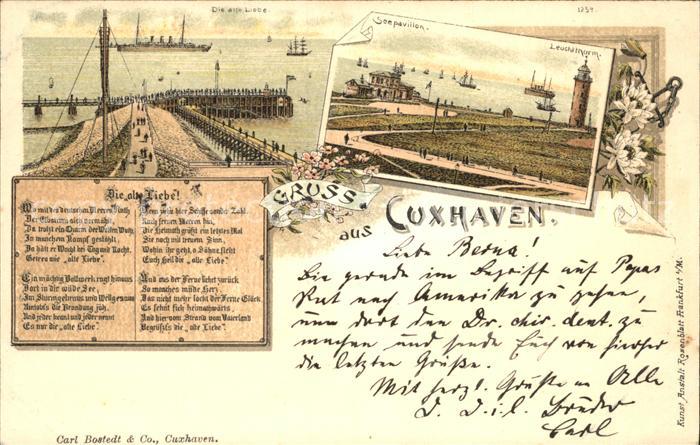 Die alte Liebe.
1259.
Seepavillon.
Leuchtthurm.
GRUSS
aus
CUXHAVEN.
Die alte Liebe!
Wo mit des deutschen Meeres Fluth
Der Elbstrom sich vermählt,
Da trotzt ein Thurm der Wellen Wuth,
In manchem Kampf gestählt,
Da hält er Wacht bei Tag und Nacht,
Getreu wie „alte Liebe“.
Ein mächtig Bollwerk ragt hinaus
Dort in die wilde See,
Im Sturmgebraus und Wellgesaus
die Brandung
Und jeder kennt und jeder nennt
Es nur die „alte Liebe“.
Dem zieh'n hier Schiffe sonder Zahl
Nach fernen Meeren hin,
Die Heimath grüßt ein letztes Mal
Sie noch mit treuem Sinn,
Wohin ihr geht, o Söhne seht
Euch Heil die „alte Liebe“.
Und aus der Ferne kehrt zurück
So manches müde Herz,
Das nicht mehr lockt der Ferne Glück
Es sehnt sich heimathwärts,
Und hier vom Strand vom Vaterland
Begrüßt's die „alte Liebe“.
Liebe Berna!
Bin gerade im Begriff auf Papas
Rat nach Amerika zu gehen,
um dort den Dr. chir. dent. zu
machen und sende Euch von hieraus
die letzten Grüße.
Mit herzl. Grüßen an Alle
D. D. i. l. Bruder
Carl
Kunst Anstalt Rosenblatt Frankfurt a/M.
Carl Bostedt & Co., Cuxhaven.